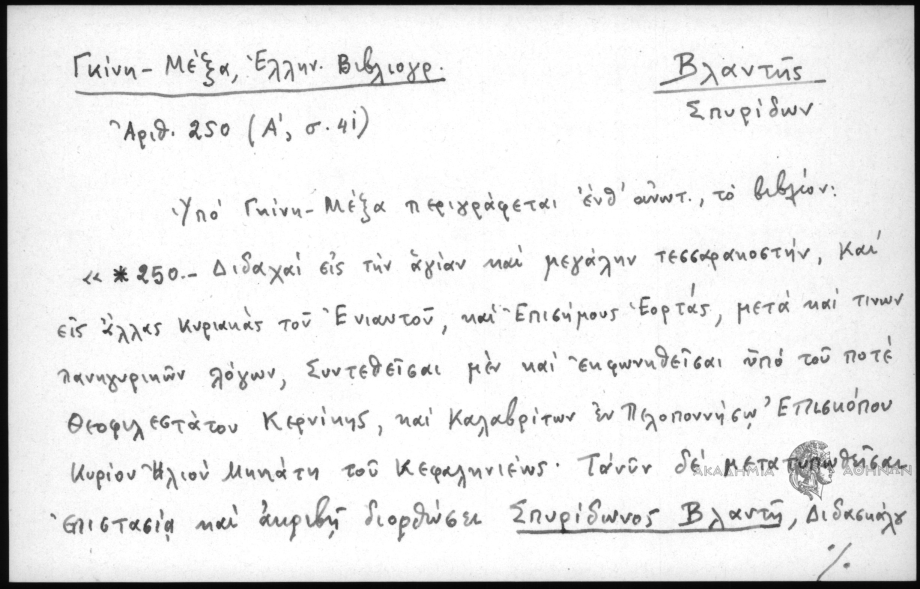 Γκίνη - Μέξα, Ἑλλην. Βιβλιογρ.
Βλαντῆς
Σπυρίδων
Ἀριθ. 250 (Α', σ. 41)
Ὑπό Γκίνη - Μέξα περιγράφεται ἐνθ' ἀνωτ., τὸ βιβλίον:
« *250.- Διδαχαὶ εἰς τὴν ἁγίαν καὶ μεγάλην τεσσαρακοστήν, Καὶ
εἰς ἄλλας Κυριακὰς τοῦ Ἐνιαυτοῦ, καὶ Ἐπισήμους Ἑορτάς, μετὰ καὶ τινων
πανηγυρικῶν λόγων, Συντεθεῖσαι μὲν καὶ ἐκφωνηθεῖσαι ὑπὸ τοῦ ποτὲ
Θεοφιλεστάτου Κερνίκης, καὶ Καλαβρίτων ἐν Πελοποννήσῳ Ἐπισκόπου
Κυρίου Ἠλιοὺ Μηνιάτη τοῦ Κεφαληνιέως. Τανῦν δὲ μετατυπωθεῖσαι
ἐπιστασίᾳ καὶ ἀκριβῇ διορθώσει Σπυρίδωνος Βλαντῆ, Διδασκάλου
./.
ΑΚΑΔΗΜΙΑ ΑΘΗΝΩΝ